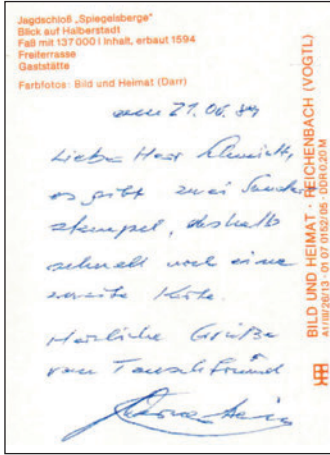 Jagdschloß „Spiegelsberge"
Blick auf Halberstadt
Faß mit 137 000 l Inhalt, erbaut 1594
Freiterrasse
Gaststätte
Farbfotos: Bild und Heimat (Darr)
am 21.06.89
Lieber Herr Schmidt,
es gibt zwei Sonder
stempel, deshalb
schnell noch eine
zweite Karte.
Herzliche Grüße
vom Tauschfreund
BILD UND HEIMAT · REICHENBACH (VOGTL)
A1/III/26/13 · 01 07 0152/05 · DDR 0,20 M